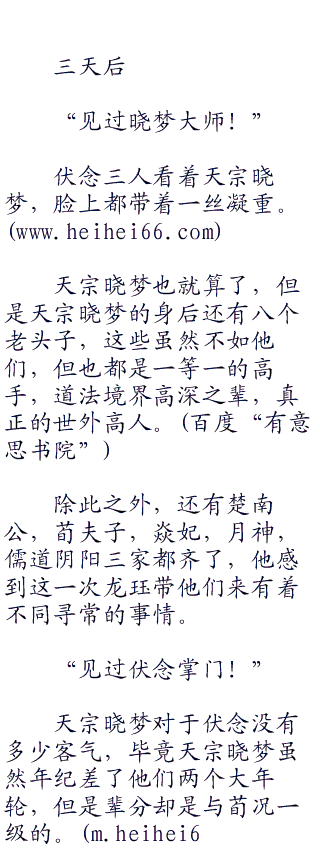 三天后
“见过晓梦大师！”
伏念三人看着天宗晓
梦，脸上都带着一丝凝重。
(www.heihei66.com)
天宗晓梦也就算了，但
是天宗晓梦的身后还有八个
老头子，这些虽然不如他
们，但也都是一等一的高
手，道法境界高深之辈，真
正的世外高人。(百度“有意
思书院”)
除此之外，还有楚南
公，荀夫子，焱妃，月神，
儒道阴阳三家都齐了，他感
到这一次龙珏带他们来有着
不同寻常的事情。
“见过伏念掌门！”
天宗晓梦对于伏念没有
多少客气，毕竟天宗晓梦虽
然年纪差了他们两个大年
轮，但是辈分却是与荀况一
级的。(m.heihei6